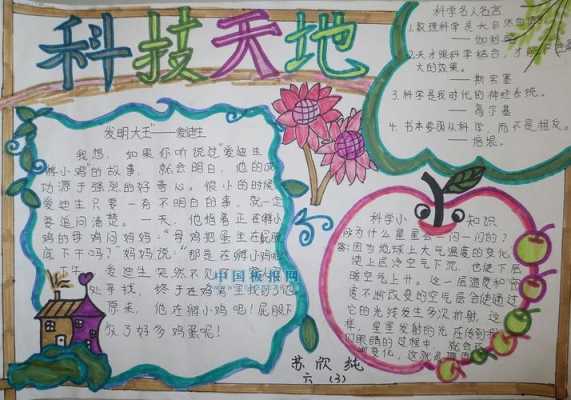 科技天地
发明大王"——爱迪生
我想，如果你听说过"爱迪生
孵小鸡"的故事，就会明白，他的成
功源于强烈的好奇心。很小的时候
爱迪生只要一有不明白的事，就一定
要追问清楚。一天，他指着正在孵小
鸡的母鸡问妈妈："母鸡把蛋坐在屁股
底下干吗？"妈妈说："那是在孵小鸡呢
爱迪生突然不见了
处寻找，终于在鸡窝里找到了他
原来，他在孵小鸡呢！屁股下
放了好多鸡蛋呢！
中国板报网
科学名人名言
1.数理科学是大自然
——伽利略
2.天才跟科学结合，才能
大的效果。
——斯宾塞
3.科学是我时代的神经系统。
——高尔基
4.书本要跟从科学，而不是相反。
——培根。
科学小知识
为什么星星会一闪一闪的？
答：因为地球上大气温度的变化，
使上层冷空气下沉，也使下层
暖空气上升。这一层温度和密
度不断改变的空气层会使通过
它的光线发生多次折射，这
样，星星发射的光在传到
们眼睛的过程中，就会
变化，这就是
苏欣纯
六（3）